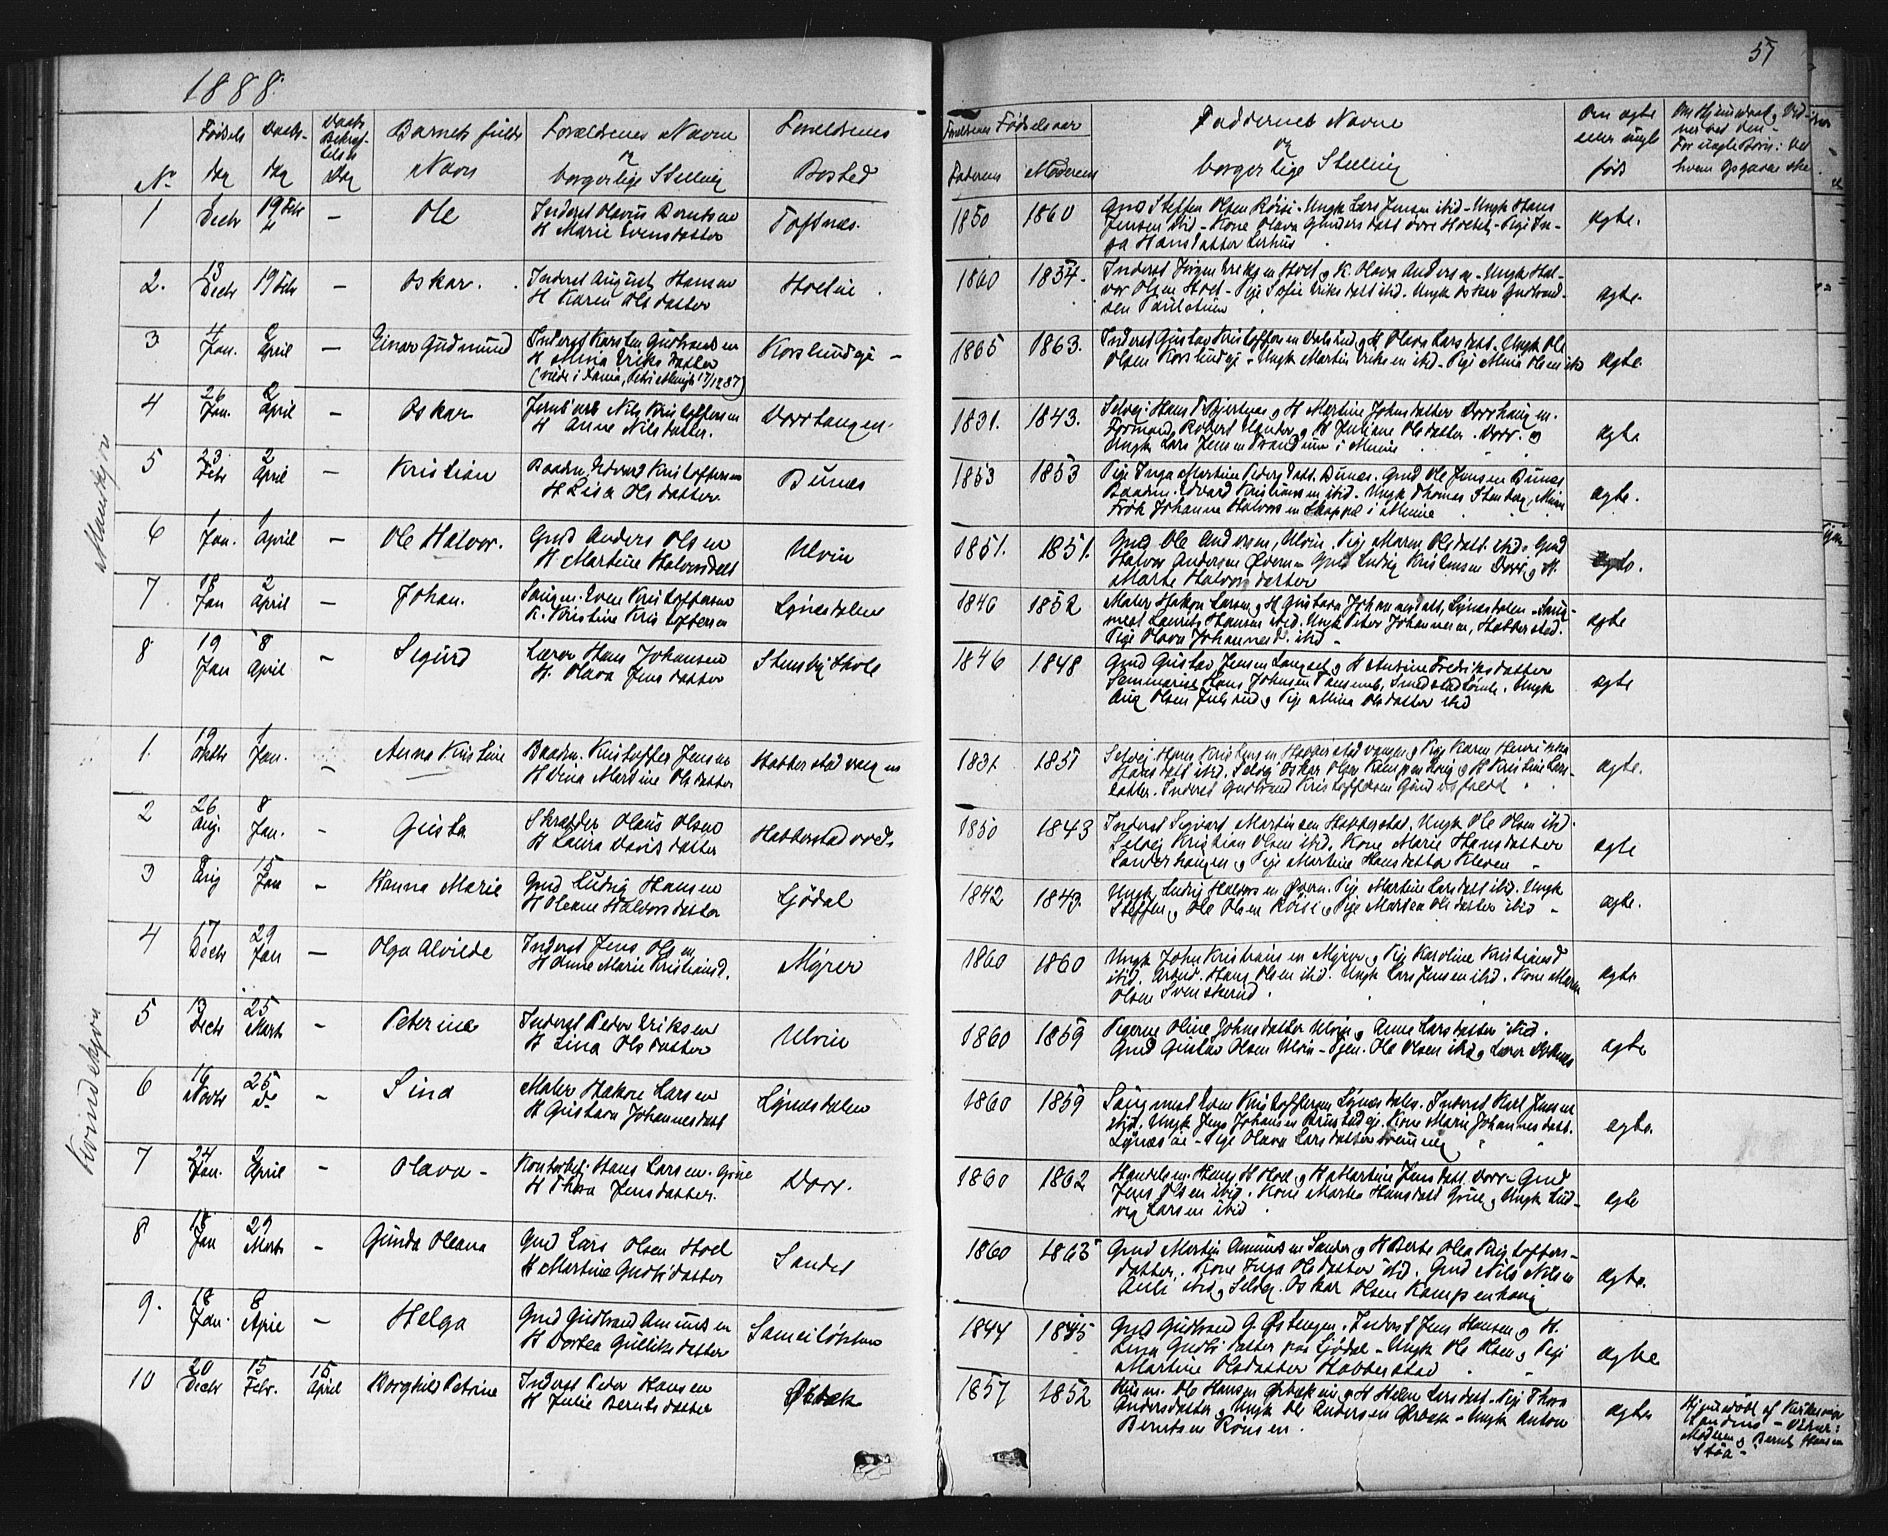 1888.
57
No
Fødsels
dag
Daabs-
dag
Daabs
Bekræf-
telses
Dag
Barnets fulde
Navn
Forældrenes Navne
og
borgerlige Stilling
Forældrenes
Bosted
Forældrenes Fødselsaar
Faderens
Moderens
Faddernes Navne
og
borgerlige Stilling
Om ægte
eller uægte
født
Om Hjemmedaab og Vid-
ner ved den -
For uægte Børn:
Mandkjøn
1
Decbr
19 Febr
-
Ole
Inderst Olavus Berntsen
H Marie Evensdatter
Toftnæs.
1850
1860
Gmd Steffen Olsen Röise - Ungk Lars Jensen ibid - Ungk Hans
Jensen ibid - Kone Olava Gundersdatt
Hansdatter
ægte.
2.
13
Decbr
19 Febr
-
Oskar.
Inderst August Hansen
H Karen Olsdatter
1860
1854.
Inderst Jørgen Eriksen Hoel og K. Olava Andersen - Ungk Hal-
vor Olsen Hoel - Pige Sofie Eriksdatt ibid. Ungk Oskar Gudbrand-
sen
ægte.
3
4
Jan.
2
April
-
Einar Gudmund
Inderst Karsten Gudbrandsen
H Mina Eriksdatter
1865
1863.
Inderst Gustav Kristoffersen og H Olava Larsdatt. Ungk Ole
Olsen - Ungk Martin Eriksen ibid - Pige Mina Olsen ibid
ægte.
4
26
Jan.
2
April
-
Oskar
Jernbarb Nils Kristoffersen
H Anne Nilsdatter.
Dorrhaugen.
1831.
1843.
Selvej: Hans Bjertnæs og H Martine Johnsdatter Dorrhaugen.
Formand Robert og H Juliane Olsdatter. Dorr. og
Ungk Lars Jensen i Minne
ægte
5
23
Febr
2
April
-
Kristian
Baadm. Edvard Kristoffersen
H Lisa Olsdatter
Bunæs
1853
1853
Pige Inga Martine Pedersdatt. Bunæs. Gmd Ole Jensen Bunæs
Baadm. Edvard Kristiansen ibid - Ungk Thomas Stenberg, Minne
Frøk Johanne Halvorsen Skappel i Minne
ægte.
6
1
Jan.
1
April
-
Ole Halvor.
Gmd Anders Olsen
H Martine Halvorsdatt
Ulvin
1851.
1851.
Gmd Ole Andersen, Ulvin. Pige Maren Olsdatt. ibid. Gmd
Halvor Andersen Øvern - Gmd Ludvig Kristensen Dorr, og H.
Marte Halvorsdatter
ægte.
7
18
Jan
2
April
-
Johan.
Saugm. Even Kristoffersen
K. Kristine Kristoffersen
Lynæsdalen
1846
1852
Maler Hakon Larsen og H Gustava Johannesdatt, Lynæsdalen - Saug-
mest Laurits Hansen ibid. Ungk Peter Johannesen, Habberstad.
Pige Olava Johannesd. ibid -
ægte
8
19
Jan
8
April
-
Sigurd
Lærer Hans Johansen
H. Olava Jensdatter
Stensby Skole
1846
1848
Gmd Gustav Jensen Langset og H Antine Fredriksdatter
Seminarist Hans Johnsen. Ungk
Aug Olsen Julsrud og Pige Mina Olsdatter ibid
ægte
Kvindekjøn
1.
19
Oktbr
1
Jan.
-
Anna Kristine
Baadm. Kristoffer Jensen
H Anna Martine Olsdatter
Habberstadvangen
1831
1851
Selvej Hans Kristensen Habberstadvangen og Pige Karen Henrikka
Hansdatt ibid. Selvej Oskar Olsen Kampenhaug og H Kristine Lars-
datter. Inderst Gudbrand Kristoffersen
ægte.
2
26
Aug.
8
Jan.
-
Gusta
Skrædder Olaus Olsen
H Laura Davisdatter
1850
1843
Inderst Sigvart Martinsen Habberstad. Ungk Ole Olsen ibid.
Selvej Kristian Olsen ibid. Kone Marie Hansdatter
Sanderhaugen og Pige Martine Hansdatter Kleven
ægte
3
8
Aug
15
Jan
-
Hanna Marie
Gmd Ludvig Hansen
H Oleane Halvorsdatter
Ljødal
1842
1843.
Ungk Ludvig Halvorsen Øvern. Pige Martine Larsdatt ibid. Ungk
Steffen og Ole Olsen Röise og Pige Martea Olsdatter ibid -
ægte.
4
17
Decbr
29
Jan
-
Olga Alvilde
Inderst Jens Olsen
H Anne Marie Kristiansd.
Myrer
1860
1860
Ungk John Kristiansen Myrer og Pige Karoline Kristiansd
ibid. Hans Olsen ibid. Ungk Lars Jensen ibid. Kone Maren
Olsen Svenskerud
ægte
5
13
Decbr
25
Marts
-
Petrine
Inderst Peder Eriksen
H Lina Olsdatter
Ulvin
1860
1859
Pigerne Oline Johnsdatter Ulvin og Anne Larsdatter ibid.
Gmd Gustav Olsen Ulvin - Tjen. Ole Olsen ibid og Lærer
ægte
6
16
Novbr
25
do
-
Sina
Maler Hakon Larsen
H Gustava Johannesdatt
Lynæsdalen
1860
1859
Saugmest Even Kristoffersen Lynæsdalen. Inderst Karl Jensen
ibid. Ungk Jens Johansen. Kone Marie Johannesdatt.
Lynæs - Pige Olava Larsdatter
ægte.
7
24
Jan.
2
April
-
Olava -
Kontorbetj. Hans Larsen. Grue
H Thea Jensdatter.
Dorr.
1860
1862
Handelsm. Hans H Hoel og H Martine Jensdatt. Dorr - Gmd
Jens Olsen ibid. Kone Marthe Hansdatt Grue og Ungk Lud-
vig Larsen ibid
ægte
8
18
Jan
29
Marts
-
Gunda Oleana
Gmd Lars Olsen Hoel
H Martine Gudbr.datter
Sander
1860
1863
Gmd Martin Amundsen Sander og H Berte Olea Kristoffers-
datter. Kone Inga Olsdatter ibid. Gmd Nils Nilsen
Auli ibid og Selvej. Oskar Olsen Kampenhaug
ægte.
9.
18
Jan.
8
April
-
Helga
Gmd Gudbrand Amundsen
H Dortea Gulliksdatter
1844
1845
Gmd Gudbrand G. Østengen. Inderst Jens Hansen og H.
Lina Gudbr.datter paa Ljødal - Ungk Ole Olsen og Pige
Martine Olsdatter Habberstad
ægte
10
20
Decbr
15
Febr.
15
April
Borghild Petrine
Inderst Peder Hansen
H Julie Berntsdatter
Ørbæk
1857
1852
Husm. Ole Hansen Ørbækeie og H Helene Larsdatt. Pige Thora
Andersdatter og Ungk Ole Andersen Ørbæk - Ungk Anton
Berntsen Rönsen.
ægte
Hjemmedöbt af Kirkesanger
- Vidner:
Moderen og Bernt Hansen
Stöa -